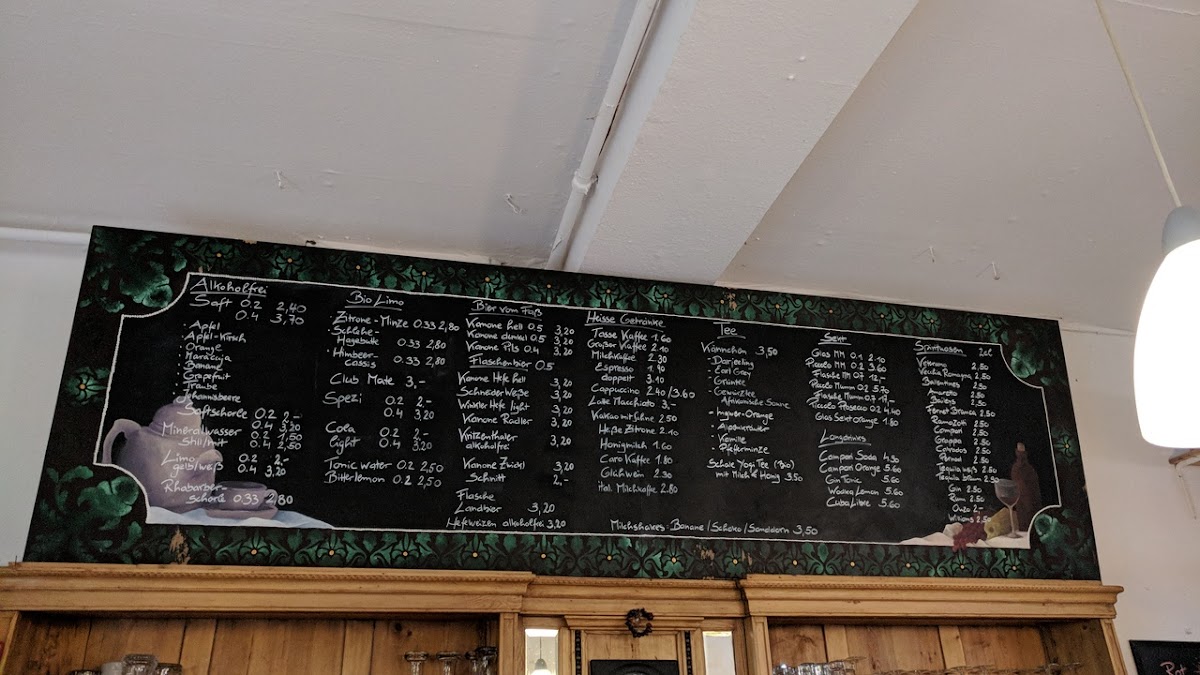 Alkoholfrei
Saft 0.2 2,40
0.4 3,70
· Apfel
· Apfel-Kirsch
· Orange
· Maracuja
· Banane
· Grapefruit
· Traube
· Johannisbeere
Saftschorle 0.2 2.-
0.4 3,20
Mineralwasser 0.2 1,50
still/mit 0.4 2,60
Limo 0.2 2.-
gelb/weiß 0.4 3,20
Rhabarber-
schorle 0.33 2,80
Bio Limo
Zitrone-Minze 0.33 2,80
Schlehe-
Hagebutte 0.33 2,80
Himbeer-
Cassis 0.33 2,80
Club Mate 3,-
Spezi 0.2 2.-
0.4 3,20
Cola 0.2 2.-
light 0.4 3,20
Tonic Water 0.2 2,50
Bitterlemon 0.2 2,50
Bier vom Faß
Kanone hell 0.5 3,20
Kanone dunkel 0.5 3,20
Kanone Pils 0.4 3,20
Flaschenbier 0.5
Kanone Hefe hell 3,20
Schneider Weiße 3,20
Winkler Hefe light 3,20
Kanone Radler 3,20
Kritzenthaler
alkoholfrei 3,20
Kanone Zwickl 3,20
Schnitt 2,-
Flasche
Landbier 3,20
Hefeweizen alkoholfrei 3,20
Heisse Getränke
Tasse Kaffee 1.60
Großer Kaffee 2.10
Milchkaffee 2.30
Espresso 1.90
doppelt 3.10
Cappuccino 2.40/3.60
Latte Macchiato 3,-
Kakao mit Sahne 2.50
Heiße Zitrone 2.10
Honigmilch 1.60
Caro Kaffee 1.80
Glühwein 2.30
ital. Milchkaffee 2.80
Milchshakes: Banane/Schoko/Sanddorn 3,50
Tee
Kännchen 3,50
· Darjeeling
· Earl Gray
· Grüntee
· Gewürztee
· Afrikanische Sonne
· Ingwer-Orange
· Alpenkräuter
· Kamille
· Pfefferminze
Schale Yogi Tee (Bio)
mit Milch & Honig 3.50
Sekt
Glas MM 0.1 2.10
Piccolo MM 0.2 3.60
Flasche MM 0.7 12,-
Piccolo Mumm 0.2 5.70
Flasche Mumm 0.7 17,-
Piccolo Prosecco 0.2 4.40
Glas Sekt Orange 1.80
Longdrinks
Campari Soda 4.30
Campari Orange 5.60
Gin Tonic 5.60
Wodka Lemon 5.60
Cuba Libre 5.60
Spirituosen 2cl
Veterano 2.50
Vecchia Romagna 2.50
Ballantines 2.50
Amaretto 2.50
Baileys 2.50
Fernet Branca 2.50
Ramazotti 2.50
Campari 2.50
Grappa 2.50
Calvados 2.50
Tequila weiß 2.50
Tequila braun 2.50
Gin 2.50
Rum 2.50
Ouzo 2.-
Williams 2.50